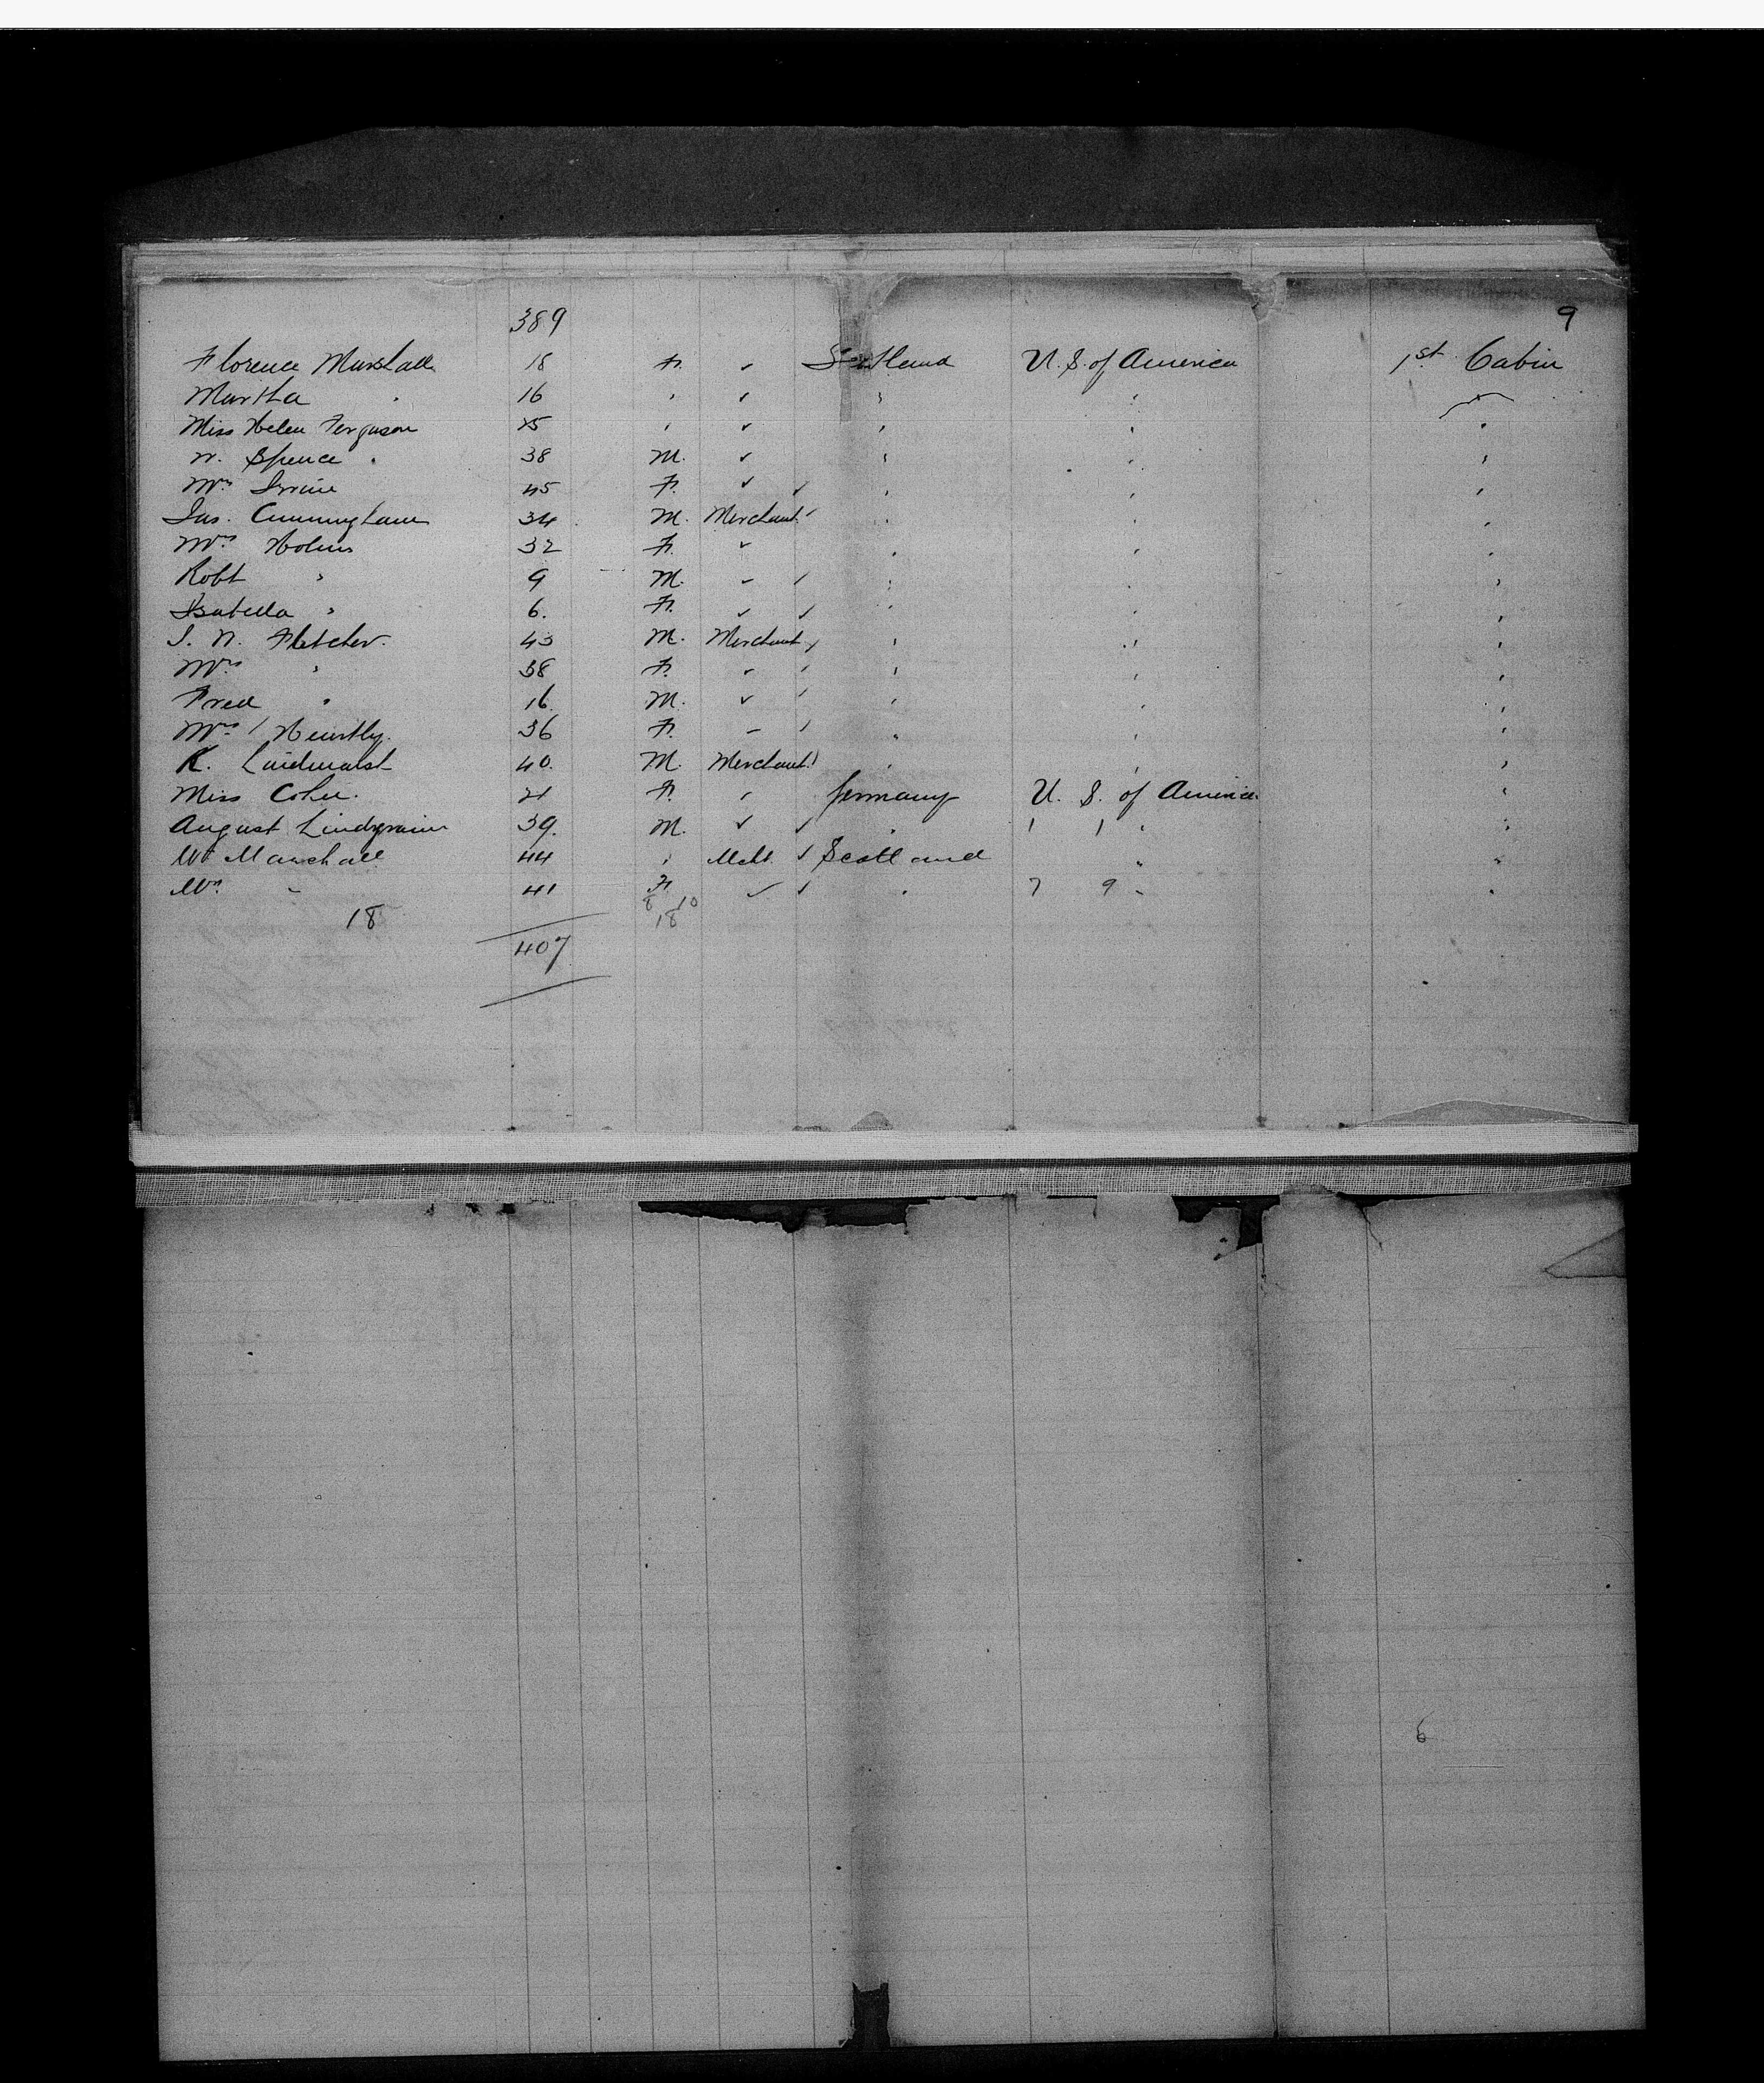 389 9
Florence Marshall 18 F. " Scotland U. S. of America 1st Cabin
Martha " 16 " " " " "
Miss Helen Ferguson " " " " "
W. Spence 38 M. " " " "
Mrs Irvine 45 F. " " " "
Jas. Cunningham 34 M. Merchant " " "
Mrs 32 F. " " " "
Robt " 9 M. " " " "
Isabella " 6. F. " " " "
J. W. Fletcher. 43 M. Merchant " " "
Mrs " 38 F. " " " "
Fred " 16 M. " " " "
Mrs 36 F. " " " "
K. 40. M. Merchant " " "
Miss Cohn. 21 F. " Germany U. S. of America "
August 39. M. " " " " " "
W Marshall 44 " Mcht. Scotland " "
Mrs " 41 F. " " 7 9 " "
8 10
18 18
407
6